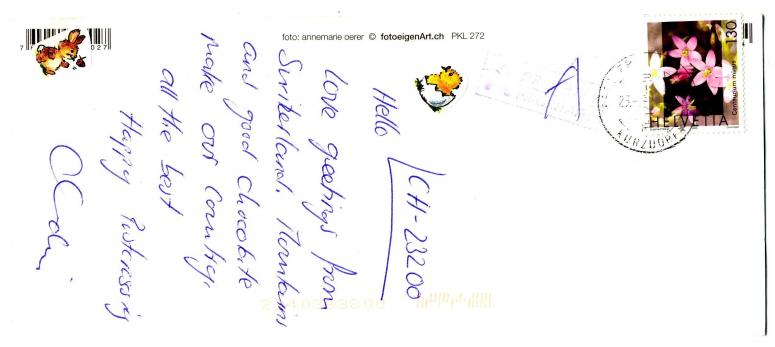 foto: annemarie oerer © fotoeigenArt.ch PKL 272
7 027
130
Centaurium minus
HELVETIA
CH-23200
Hello
love greetings from
Switzerland. Mountains
and good chocolate
make out country.
all the best
Happy Postcrossing